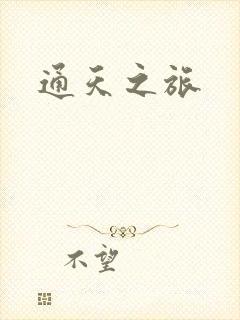 通天之旅
不望